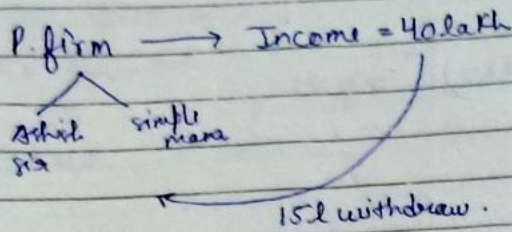 P. firm → Income = 40 lakh
Ashish simple
sir mama
15l withdraw.